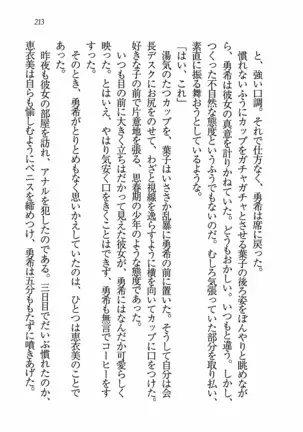 213
と、強い口調。それで仕方なく、勇希は席に戻った。
慣れないふうにカップをガチャガチャとさせる葉子の後ろ姿をぼんやりと眺めなが
ら、勇希は彼女の真意を計りかねていた。どうもおかしい。いつもと違う。しかし、
とって不自然な態度というふうでもない。むしろ気張っていた部分を取り払い、
素直に振る舞おうと
「はい、これ」
湯気のたつカップを、葉子はいささか乱暴に勇希の前に置いた。そうして自分は会
長デスクにお尻をのせて、わざと視線を逸らすように横を向いてカップに口をつけた。
好きな子の前で片意地を張る、思春期の少年のような態度であった。
いつも目の前に大きく立ちはだかって見えた彼女が、勇希にはなんだか可愛らしく
映った。とはいえ、やはり気安く口をきくことはできず、勇希も無言でコーヒーをす
すった。
そのとき、勇希がとりとめもなく思いかえしていたのは、ひとつは恵衣美のことで
あった。
昨夜も彼女の部屋を訪れ、アナルを犯したのである。三日目でだいぶ慣れたのか、
恵衣美は自らも愉しむようにペニスを締めつけ、勇希は五分ももたずに噴きあげた。